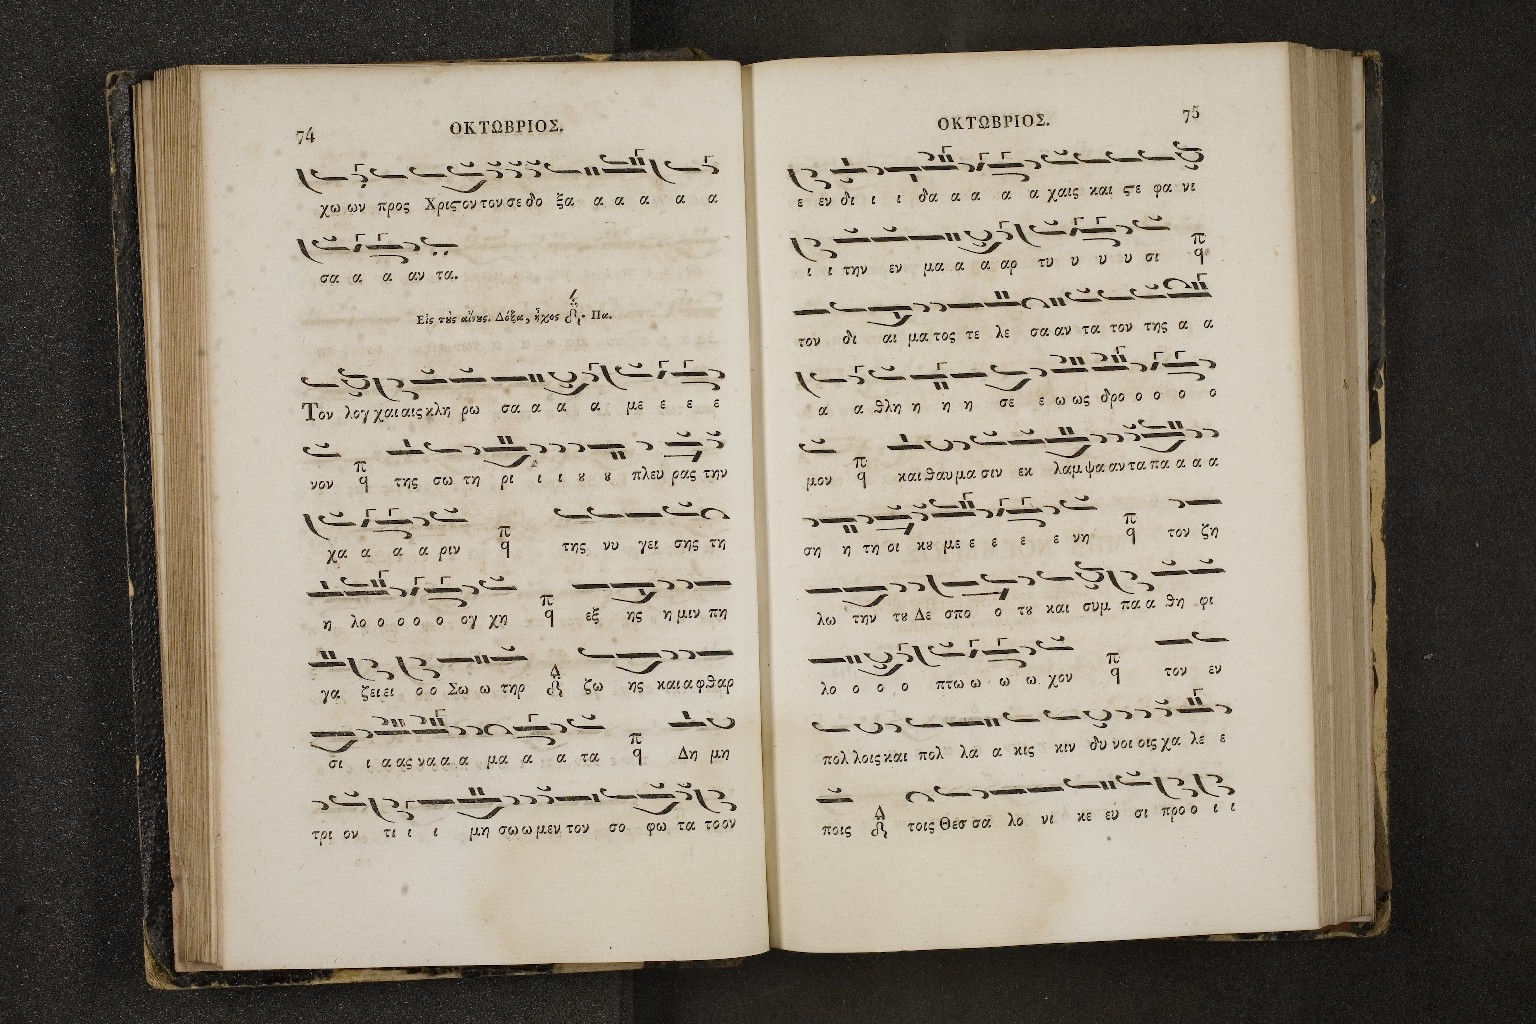 74
ΟΚΤΩΒΡΙΟΣ.
χω ων προς Χριϛον τον σε δο ξα α α α α α
σα α α αν τα.
Εἰς τȣ̀ς αἴνȣς. Δόξα, ἦχος Πα.
Τον λογ χαι αις κλη ρω σα α α α με ε ε ε
νον π q της σω τη ρι ι ι ȣ ȣ πλευ ρας την
χα α α α ριν π q της νυ γει σης τη
η λο ο ο ο ο ογ χη π q εξ ης η μιν πη
γα ζει ει ο ο Σω ω τηρ Δ ζω ης και α φθαρ
σι ι α ας να α α μα α α τα π q Δη μη
τρι ον τι ι ι μη σω ω μεν τον σο φω τα τοον
ΟΚΤΩΒΡΙΟΣ.
75
ε εν δι ι ι δα α α α α χαις και ϛε φα νι
ι ι την εν μα α α αρ τυ υ υ υ σι π q
τον δι αι μα τος τε λε σα αν τα τον της α α
α α θλη η η η σε ε ω ως δρο ο ο ο ο
μον π q και θαυ μα σιν εκ λαμ ψα αν τα πα α α α
ση η τη οι κȣ με ε ε ε ε νη π q τον ζη
λω την τȣ Δε σπο ο τȣ και συμ πα α θη φι
λο ο ο ο πτω ω ω ω ω χον π q τον εν
πολ λοις και πολ λα α κις κιν δυ νοι οις χα λε ε
ποις Δ τοις Θεσ σα λο νι κε εύ σι προ ο ι ι